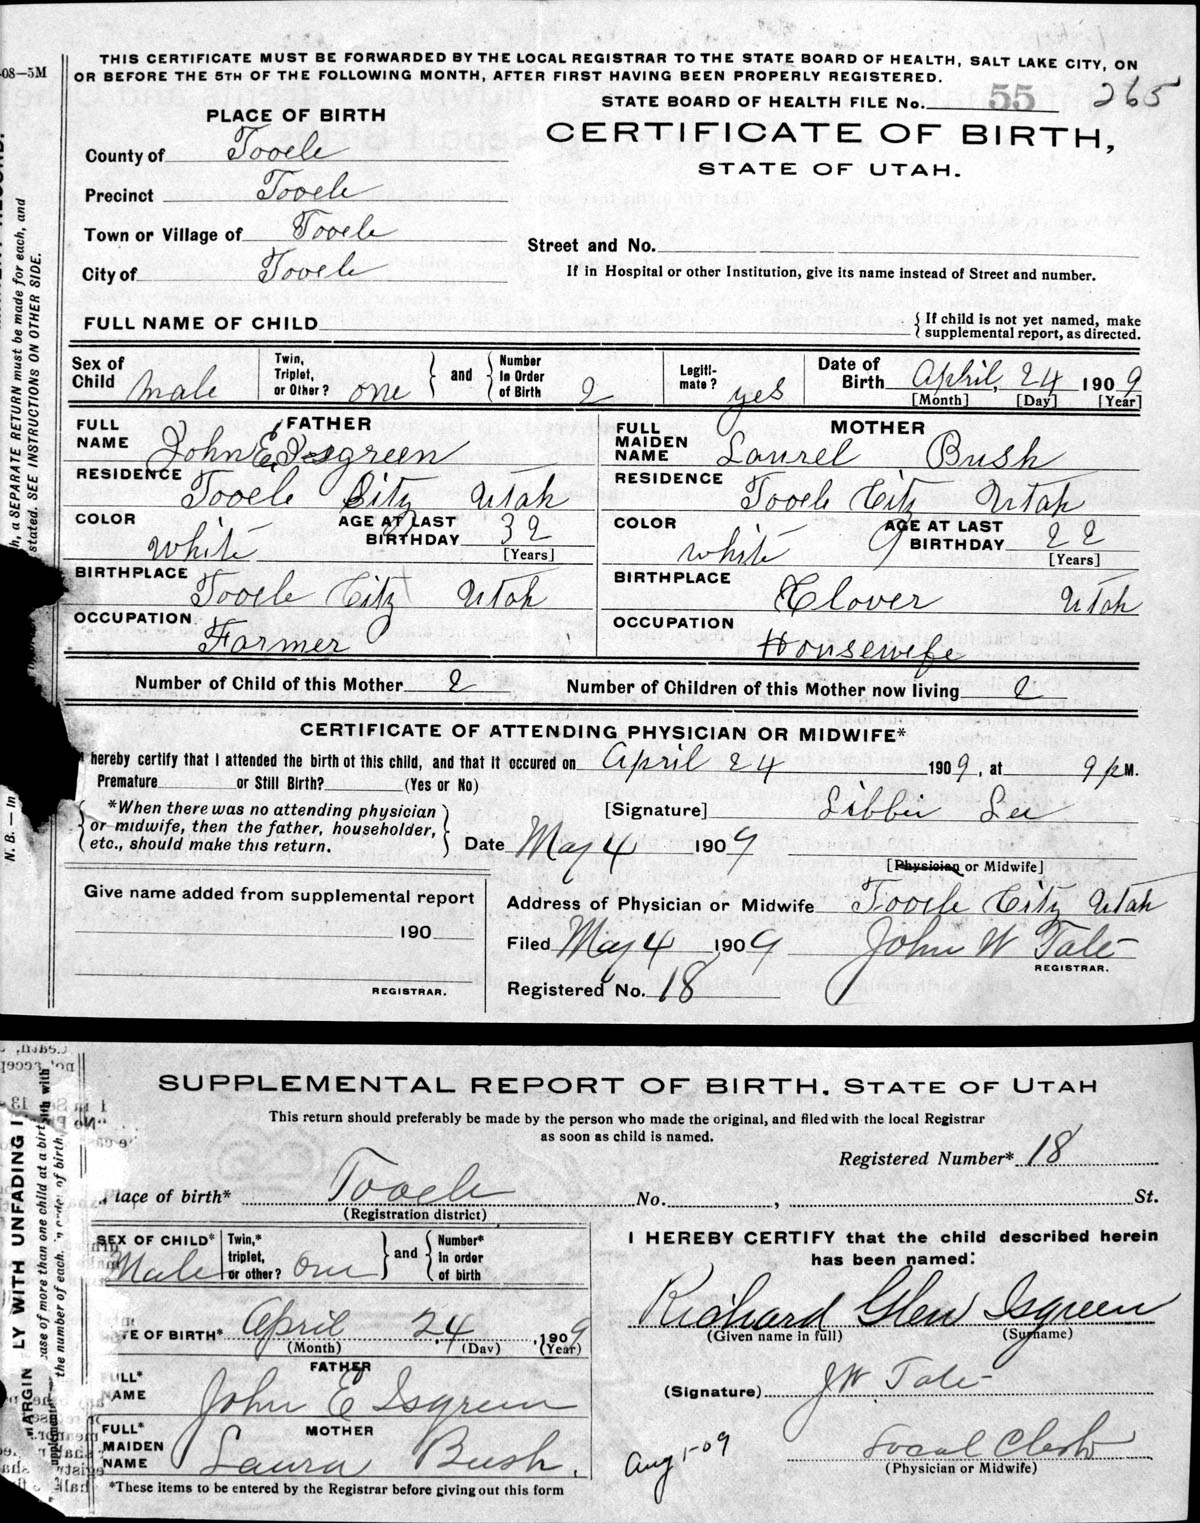 -08-5M
THIS CERTIFICATE MUST BE FORWARDED BY THE LOCAL REGISTRAR TO THE STATE BOARD OF HEALTH, SALT LAKE CITY, ON
OR BEFORE THE 5TH OF THE FOLLOWING MONTH, AFTER FIRST HAVING BEEN PROPERLY REGISTERED.
STATE BOARD OF HEALTH FILE No. 55 265
PLACE OF BIRTH
CERTIFICATE OF BIRTH,
STATE OF UTAH.
County of Tooele
Precinct Tooele
Town or Village of Tooele
City of Tooele
Street and No.
If in Hospital or other Institution, give its name instead of Street and number.
FULL NAME OF CHILD { If child is not yet named, make
supplemental report, as directed.
Sex of Child male Twin, Triplet, or Other? one } and { Number In Order of Birth 2 Legiti-mate? yes Date of Birth April, 24 1909
[Month] [Day] [Year]
FATHER
FULL NAME John E. Isgreen
MOTHER
FULL MAIDEN NAME Laurel Bush
RESIDENCE Tooele City Utah
RESIDENCE Tooele City Utah
COLOR White AGE AT LAST BIRTHDAY 32 [Years]
COLOR White AGE AT LAST BIRTHDAY 22 [Years]
BIRTHPLACE Tooele City Utah
BIRTHPLACE Clover Utah
OCCUPATION Farmer
OCCUPATION Housewife
Number of Child of this Mother 2 Number of Children of this Mother now living 2
CERTIFICATE OF ATTENDING PHYSICIAN OR MIDWIFE*
I hereby certify that I attended the birth ot this child, and that it occured on April 24 1909, at 9 P M.
Premature or Still Birth? (Yes or No)
{ *When there was no attending physician
or midwife, then the father, householder,
etc., should make this return. }
[Signature] Libbie Lee
Date May 4 1909
[Physician or Midwife]
Give name added from supplemental report
190
REGISTRAR.
Address of Physician or Midwife Tooele City Utah
Filed May 4 1909 John W Tate
REGISTRAR.
Registered No. 18
h, a SEPARATE RETURN must be made for each, and
stated. SEE INSTRUCTIONS ON OTHER SIDE.
N. B. — In
SUPPLEMENTAL REPORT OF BIRTH, STATE OF UTAH
This return should preferably be made by the person who made the original, and filed with the local Registrar
as soon as child is named.
Registered Number* 18
Place of birth* Tooele No. , St.
(Registration district)
SEX OF CHILD* Male Twin,* triplet, or other? One } and { Number* in order of birth
I HEREBY CERTIFY that the child described herein
has been named:
Richard Glen Isgreen
(Given name in full) (Surname)
DATE OF BIRTH* April 24, 1909
(Month) (Day) (Year)
FATHER
FULL* NAME John E Isgreen
(Signature) J W Tate
MOTHER
FULL* MAIDEN NAME Laura Bush.
Aug 1-09
Local Clerk
(Physician or Midwife)
*These items to be entered by the Registrar before giving out this form
MARGIN
LY WITH UNFADING I
ase of more than one child at a birth
the number of each, in order of birth,